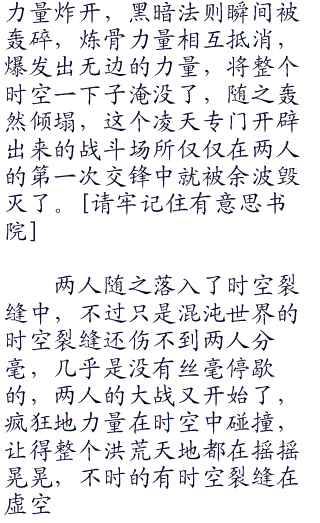 力量炸开，黑暗法则瞬间被
轰碎，炼骨力量相互抵消，
爆发出无边的力量，将整个
时空一下子淹没了，随之轰
然倾塌，这个凌天专门开辟
出来的战斗场所仅仅在两人
的第一次交锋中就被余波毁
灭了。[请牢记住有意思书
院]
两人随之落入了时空裂
缝中，不过只是混沌世界的
时空裂缝还伤不到两人分
毫，几乎是没有丝毫停歇
的，两人的大战又开始了，
疯狂地力量在时空中碰撞，
让得整个洪荒天地都在摇摇
晃晃，不时的有时空裂缝在
虚空